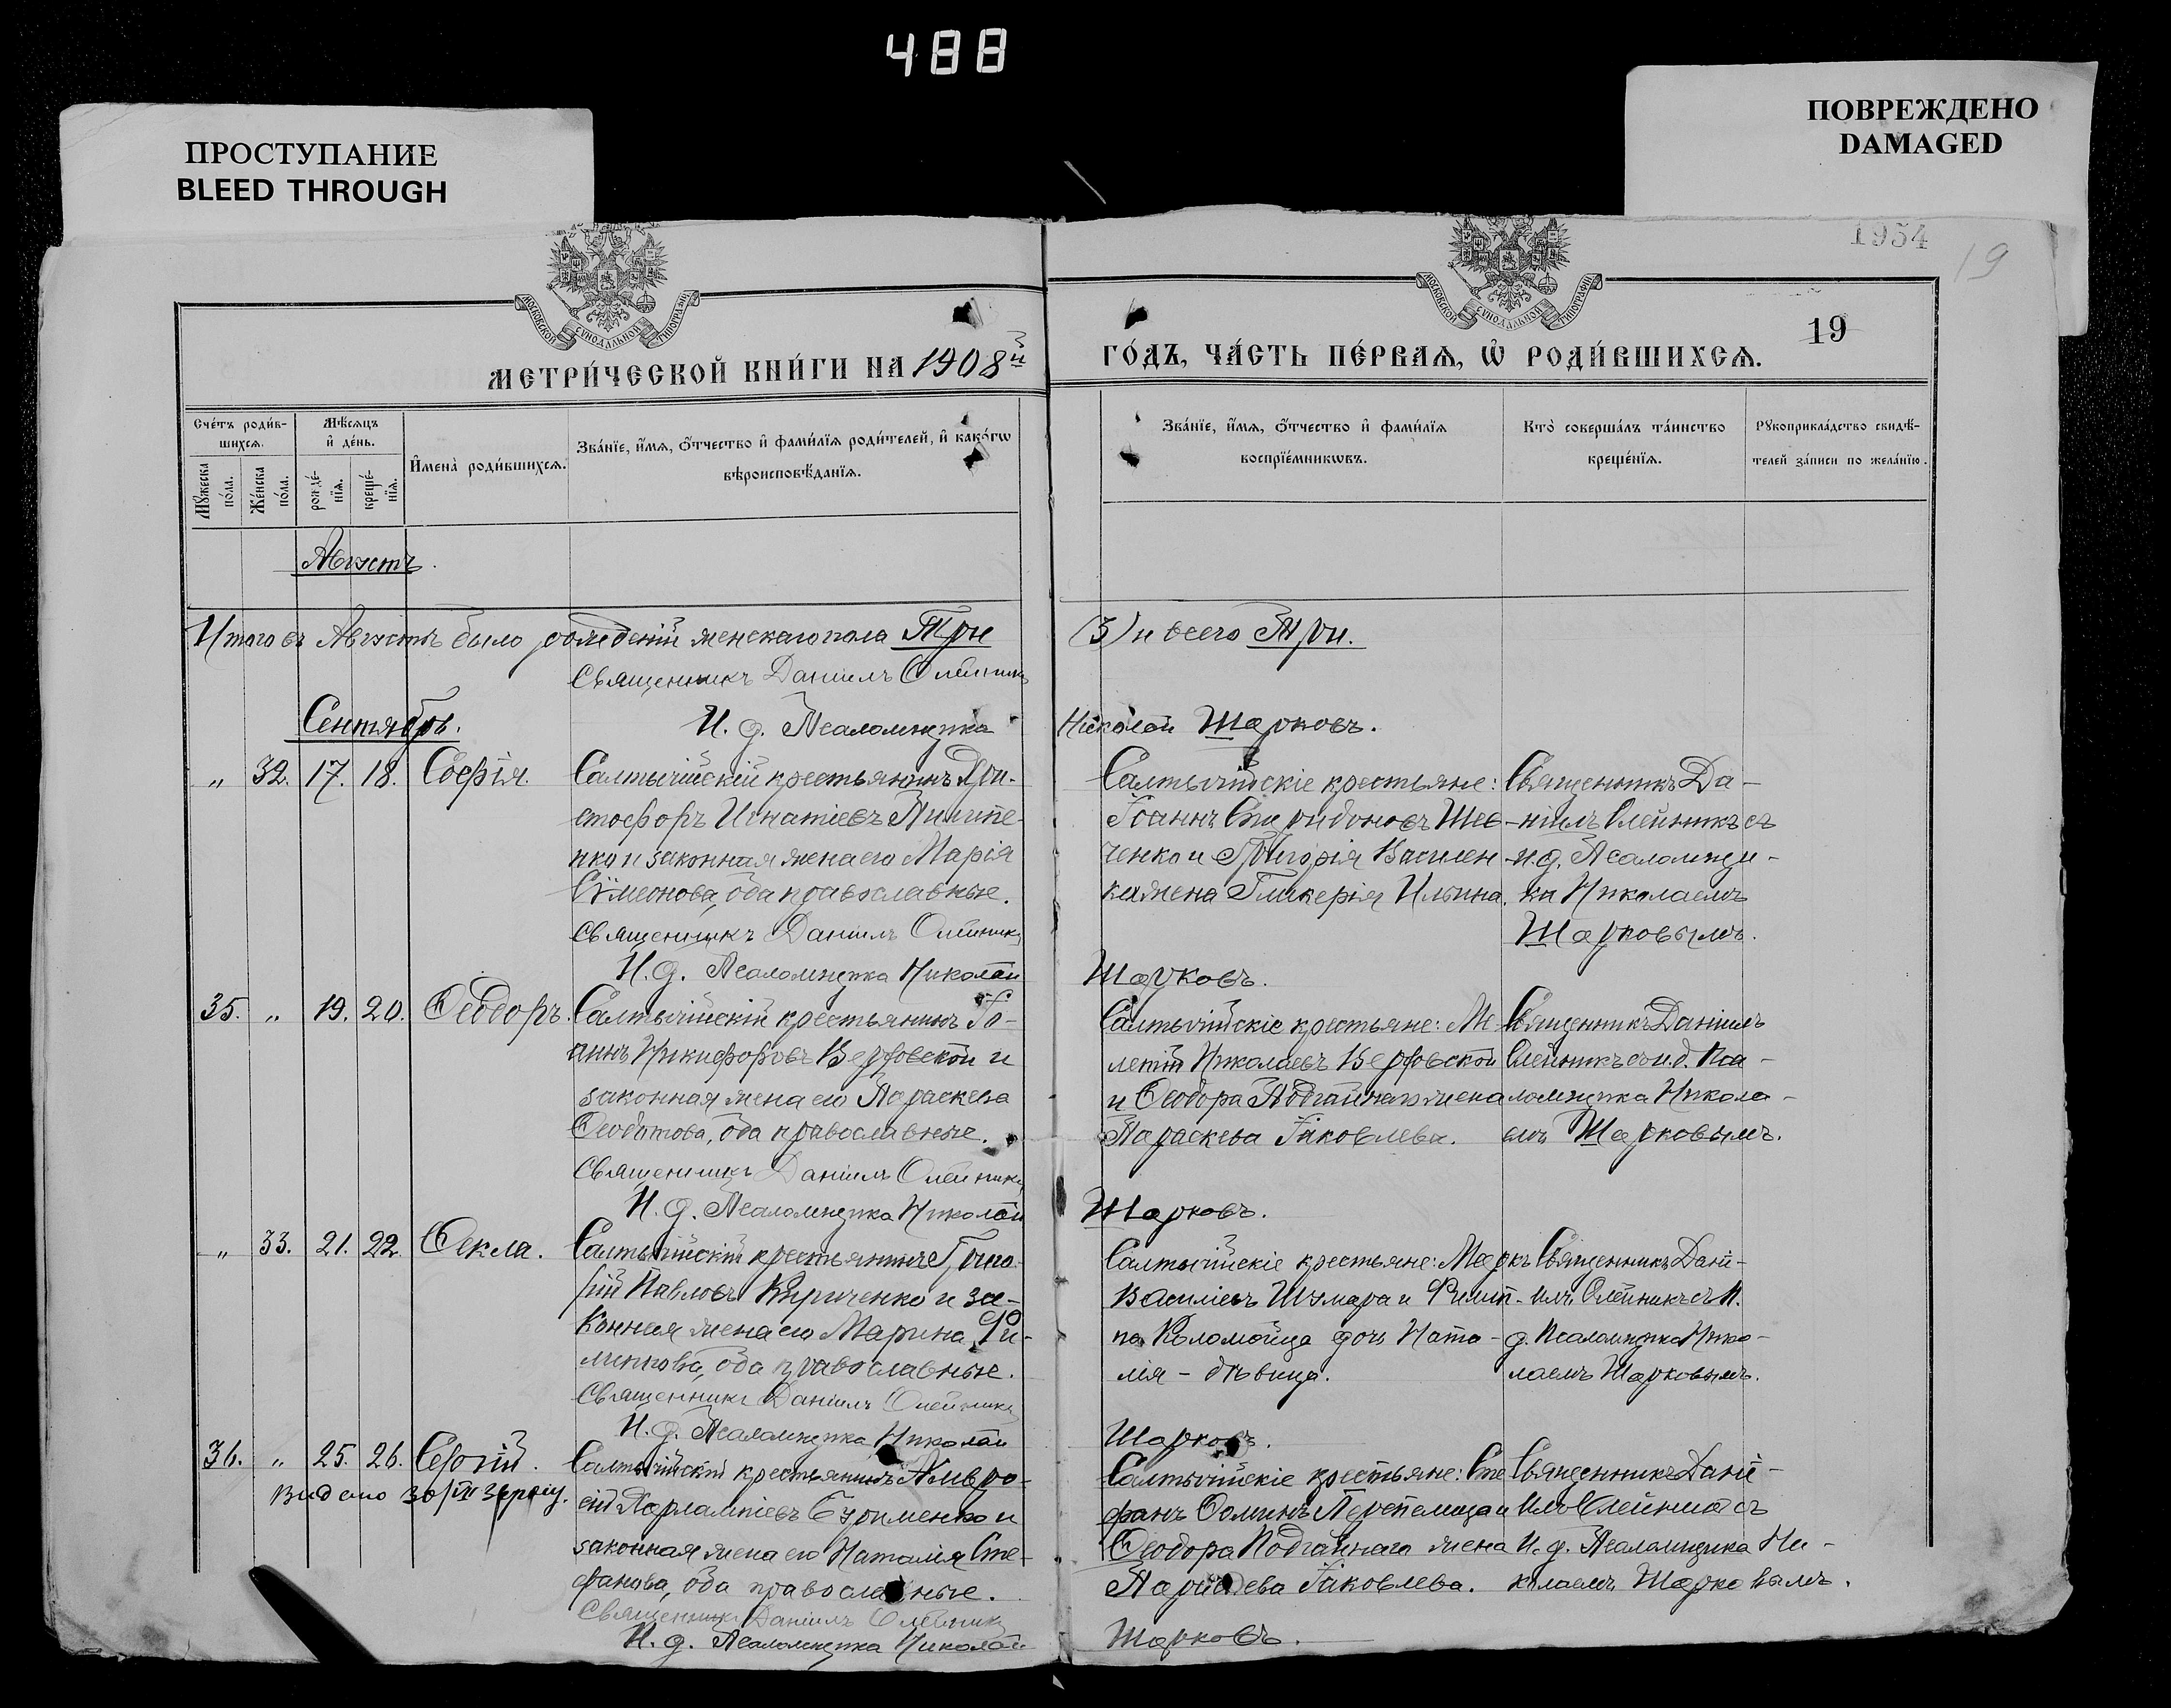 488
ПРОСТУПАНИЕ
BLEED THROUGH
ПОВРЕЖДЕНО
DAMAGED
1954
19
МОСКОВСКОЙ СѴНОДАЛЬНОЙ ТИПОГРАФІИ
МОСКОВСКОЙ СѴНОДАЛЬНОЙ ТИПОГРАФІИ
19
МЕТРИ́ЧЕСКОЙ КНИ́ГИ НА 1908й
ГО́ДЪ, ЧА́СТЬ ПЕ́РВАѦ, Ѡ РОДИ́ВШИХСѦ.
Сче́тъ роди́в-
шихсѧ.
Мꙋ́жеска по́ла.
Же́нска по́ла.
Мѣ́сѧцъ
и҆ де́нь.
рожде́-
нїѧ.
креще́-
нїѧ.
И҆мена̀ роди́вшихсѧ.
Зва́нїе, и҆́мѧ, ѻ҆́тчество и҆ фами́лїѧ роди́телей, и҆ како́гѡ
вѣроисповѣ́данїѧ.
Зва́нїе, и҆́мѧ, ѻ҆́тчество и҆ фами́лїѧ
воспрїе́мникѡвъ.
Кто̀ соверша́лъ та́инство
креще́нїѧ.
Рꙋкоприкла́дство свидѣ́-
телей за́писи по жела́нїю.
Августъ.
Итого въ Августѣ было рожденій женскаго пола Три
(3) и всего Три.
Священникъ Даніилъ Олейникъ
Сентябрь.
И. д. Псаломщика
Николай Шарковъ.
„ 32. 17. 18. Софія.
Салтычійскій крестьянинъ Хри-
стофоръ Игнатіевъ Пилипе-
нко и законная жена его Марія
Сѵмеонова, оба православные.
Священникъ Даніилъ Олейникъ
И. д. Псаломщика Николай
Салтычійскіе крестьяне:
Іоаннъ Спиридоновъ Шев-
ченко и Григорія Василен-
ка жена Гликерія Ильина.
Священникъ Да-
ніилъ Олейникъ съ
и. д. Псаломщи-
ка Николаемъ
Шарковымъ.
Шарковъ.
35. „ 19. 20. Ѳеодоръ.
Салтычійскій крестьянинъ Іо-
аннъ Никифоровъ Верфовской и
законная жена его Параскева
Ѳеодотова, оба православные.
Священникъ Даніилъ Олейникъ
И. д. Псаломщика Николай
Салтычійскіе крестьяне: Ме-
летій Николаевъ Верфовской
и Ѳеодора Подгайнаго жена
Параскева Іаковлева.
Священникъ Даніилъ
Олейникъ съ и. д. Пса-
ломщика Никола-
емъ Шарковымъ.
Шарковъ.
„ 33. 21. 22. Ѳекла.
Салтычійскій крестьянинъ Григо-
рій Павловъ Кириченко и за-
конная жена его Марина Фи-
липпова, оба православные.
Священникъ Даніилъ Олейникъ
И. д. Псаломщика Николай
Салтычійскіе крестьяне: Маркъ
Василіевъ Шумара и Филип-
па Коломойца дочь Ната-
лія – дѣвица.
Священникъ Дані-
илъ Олейникъ съ И.
д. Псаломщика Нико-
лаемъ Шарковымъ.
Шарковъ.
36. „ 25. 26. Сергій.
Видано 30/IV
Салтычійскій крестьянинъ Амвро-
сій Харлампіевъ Бурименко и
законная жена его Наталія Сте-
фанова, оба православные.
Священникъ Даніилъ Олейникъ
И. д. Псаломщика Николай
Салтычійскіе крестьяне: Сте-
фанъ Ѳоминъ Перепелица и
Ѳеодора Подгайнаго жена
Параскева Іаковлева.
Священникъ Дані-
илъ Олейникъ съ
И. д. Псаломщика Ни-
колаемъ Шарковымъ.
Шарковъ.